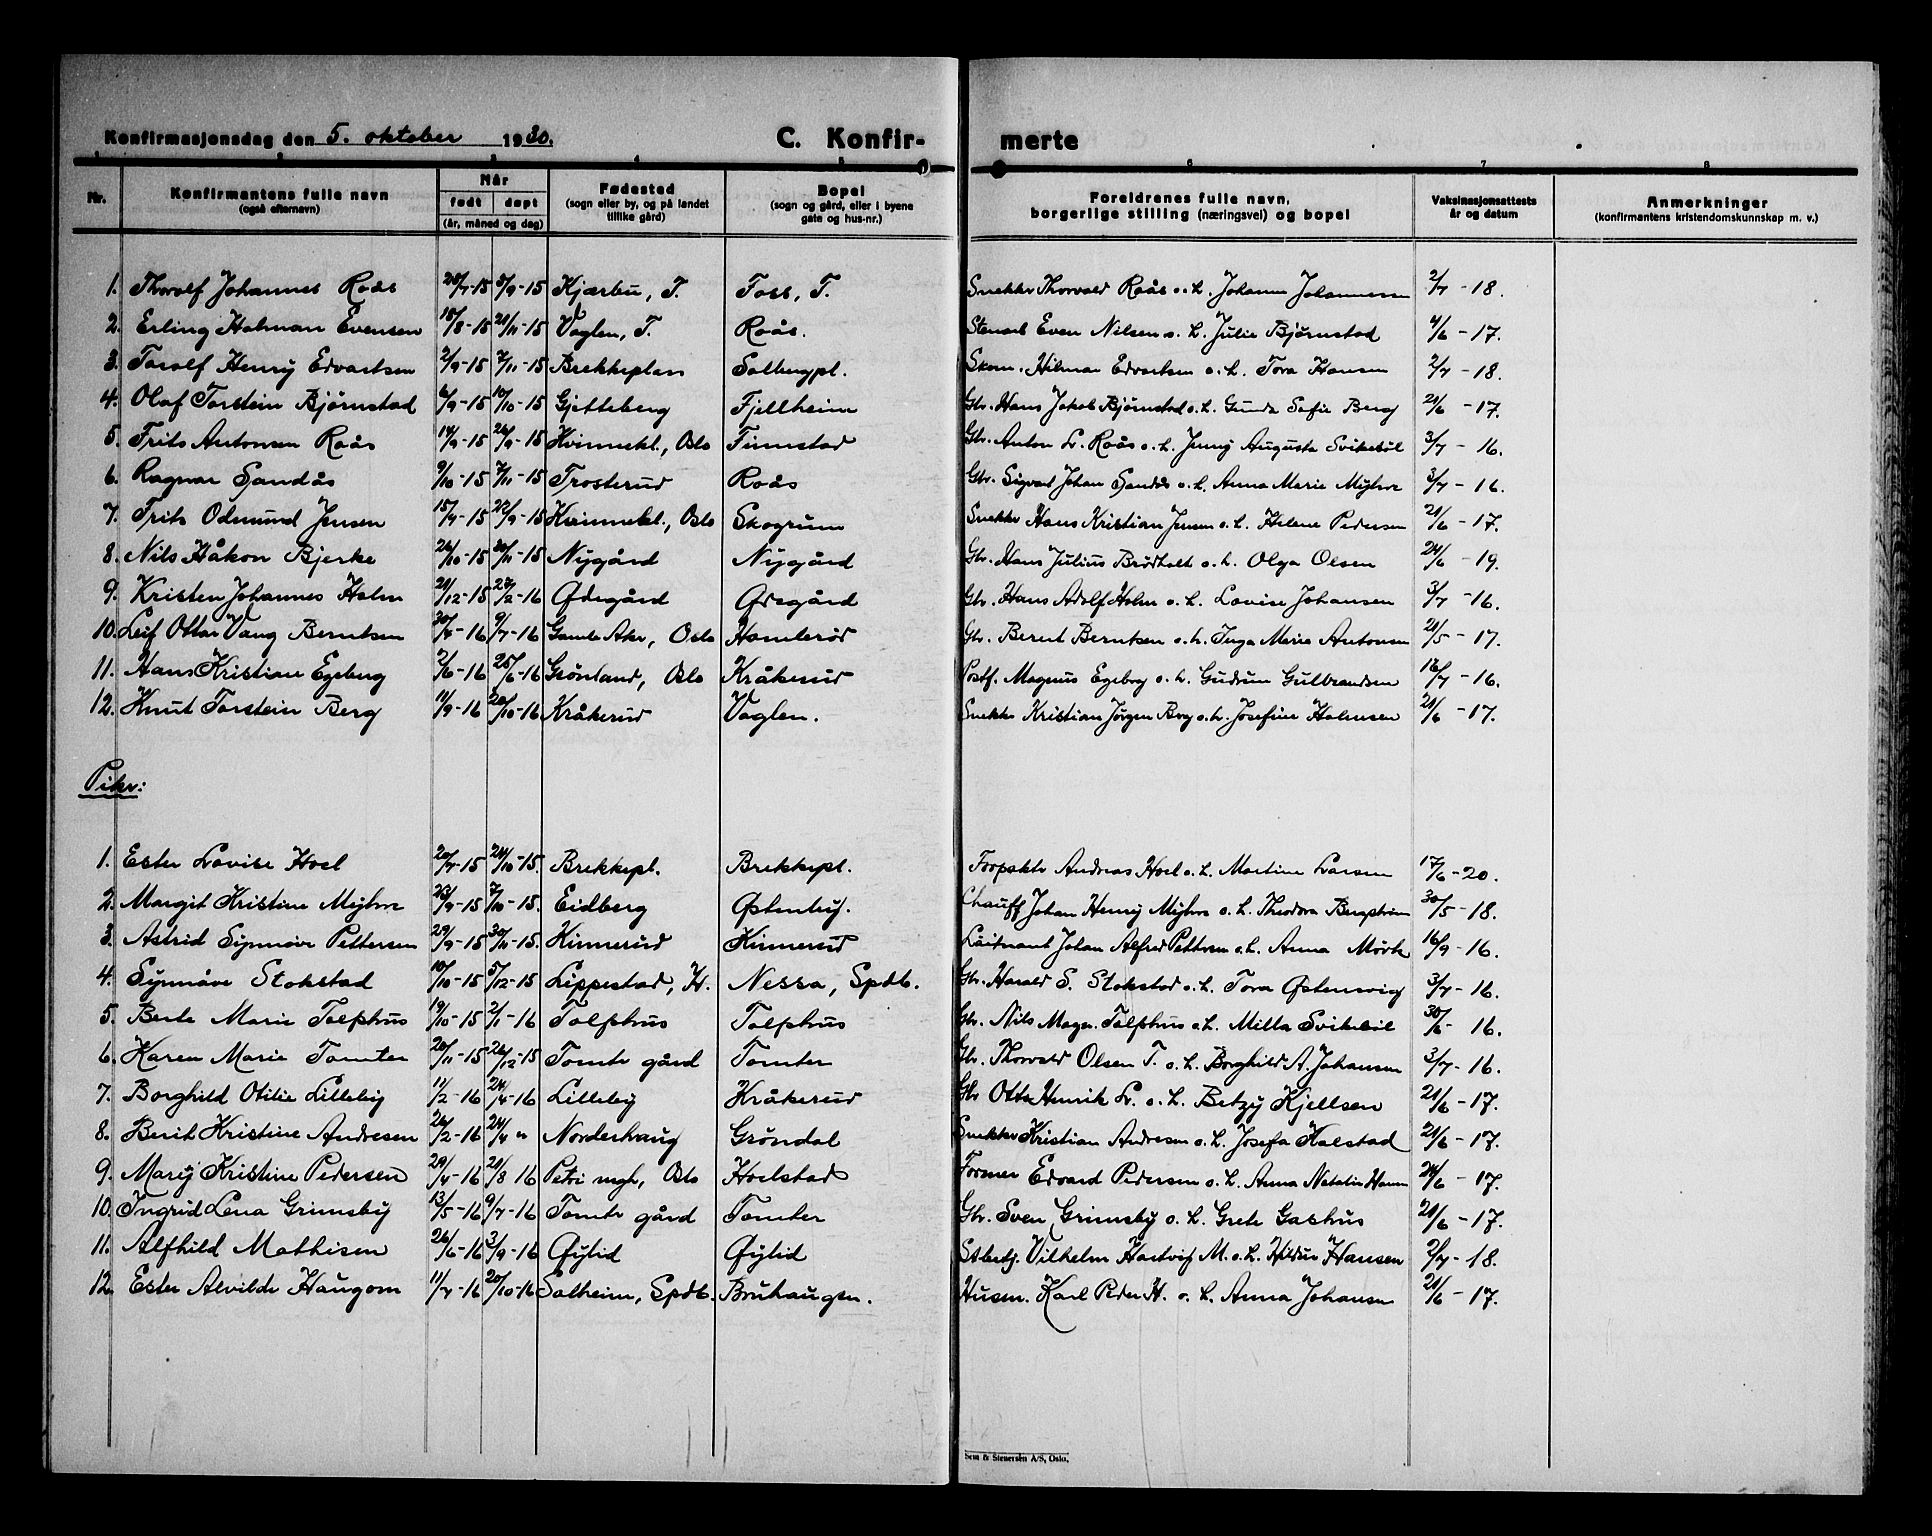 Konfirmasjonsdag den 5. oktober 1930. C. Konfir- merte
1 2 3 4 5 6 7 8
Nr. Konfirmantens fulle navn (også efternavn) Når født døpt (år, måned og dag) Fødested (sogn eller by, og på landet tillike gård) Bopel (sogn og gård, eller i byene gate og hus-nr.) Foreldrenes fulle navn, borgerlige stilling (næringsvei) og bopel Vaksinasjonsattests år og datum Anmerkninger (konfirmantens kristendomskunnskap m. v.)
1. Thorolf Johannes Roås 28/7-15 5/9-15 Kjærbu, T. Foss, T. Snekker Thorvald Roås o. h. Johanne Johannessen 2/7-18.
2. Erling Holman Evensen 15/8-15 21/11-15 Vaglen, T. Roås. Stenarb. Even Nilsen o. h. Julie Bjørnstad 4/6-17.
3. Torolf Henry Edvartsen 2/9-15 7/11-15 Brekkeplan Solbergpl. Skom. Hilmar Edvartsen o. h. Tora Hansen 2/7-18.
4. Olaf Torstein Bjørnstad 6/9-15 10/10-15 Gjetteberg Fjellheim Gbr. Hans Jakob Bjørnstad o. h. Gunda Sofie Berg 21/6-17.
5. Frits Antonsen Roås 14/9-15 26/9-15 Kvinnekl., Oslo Finnstad Gbr. Anton L. Roås o. h. Jenny Augusta Svikebøl 3/7-16.
6. Ragnar Sandås 9/10-15 7/11-15 Trosterud Roås Gbr. Sigvart Johan Sandås o. h. Anna Marie Myhre 3/7-16.
7. Frits Odmund Jensen 15/7-15 22/9-15 Kvinnekl., Oslo Skogrum Snekker Hans Kristian Jensen o. h. Helene Pedersen 21/6-17.
8. Nils Håkon Bjerke 26/10-15 20/11-15 Nygård Nygård Gbr. Hans Julius Brødholt o. h. Olga Olsen 24/6-19.
9. Kristen Johannes Holm 21/12-15 27/2-16 Ødegård Ødegård Gbr. Hans Adolf Holm o. h. Lovise Johansen 3/7-16.
10. Leif Ottar Vang Berntsen 30/4-16 9/7-16 Gamle Aker, Oslo Homlerød Gbr. Bernt Berntsen o. h. Inga Marie Antonsen 21/5-17.
11. Hans Kristian Egeberg 2/6-16 25/6-16 Grønland, Oslo Kråkerud Postf. Magnus Egeberg o. h. Gudrun Gulbrandsen 13/7-16.
12. Knut Torstein Berg 11/9-16 20/10-16 Kråkerud Vaglen. Snekker Kristian Jørgen Berg o. h. Josefine Halvorsen 21/6-17.
Piker:
1. Ester Lovise Hoel 20/7-15 24/10-15. Brekkepl. Brekkepl. Andreas Hoel o. h. Martine Larsen 17/6-20.
2. Margit Kristine Myhre 23/9-15 7/10-15. Eidberg Østenby. Chauff. Johan Henry Myhre o. h. Theodora Bergstrøm 30/5-18.
3. Astrid Synnøve Pettersen 29/9-15 30/11-15. Kinnerud Kinnerud Løitnant Johan Alfred Pettersen o. h. Anna Mørk 16/9-16.
4. Synnøve Stokstad 10/10-15 5/12-15 Lippestad, Kr. Nessa, Spdb. Gbr. Harald S. Stokstad o. h. Tora Østensvig 3/7-16.
5. Berte Marie Tolfshus 19/10-15 2/1-16 Tolfshus Tolfshus Gbr. Nils Magn. Tolfshus o. h. Milla Svikebøl 30/6-16.
6. Karen Marie Tomter 20/11-15 26/12-15 Tomter gård Tomter Gbr. Thorvald Olsen T. o. h. Borghild A. Johansen 3/7-16.
7. Borghild Otilie Lilleby 11/2-16 24/4-16 Lilleby Kråkerud Gbr. Otto Henrik L. o. h. Betzy Kjellsen 21/6-17.
8. Berit Kristine Andresen 26/2-16 24/4 " Norderhaug Grøndal Snekker Kristian Andresen o. h. Josefa Kalstad 21/6-17.
9. Mary Kristine Pedersen 29/4-16 21/8 16 Petri mgh., Oslo Hoelstad Former Edvard Pedersen o. h. Anna Natalie Hansen 24/6-17.
10. Ingrid Lena Grimsby 13/5-16 9/7-16 Tomter gård Tomter Gbr. Sven Grimsby o. h. Grete Gashus 21/6-17.
11. Alfhild Mathisen 26/6-16 3/9-16 Øylid Øylid Vilhelm Hartvig M. o. h. Hildur Hansen 2/7-18.
12. Ester Alvilde Haugom 11/7-16 20/10-16 Solheim, Spdb. Bruhaugen. Husm. Karl Peder H. o. h. Anna Johansen 21/6-17.
Sem & Stenersen A/S, Oslo.